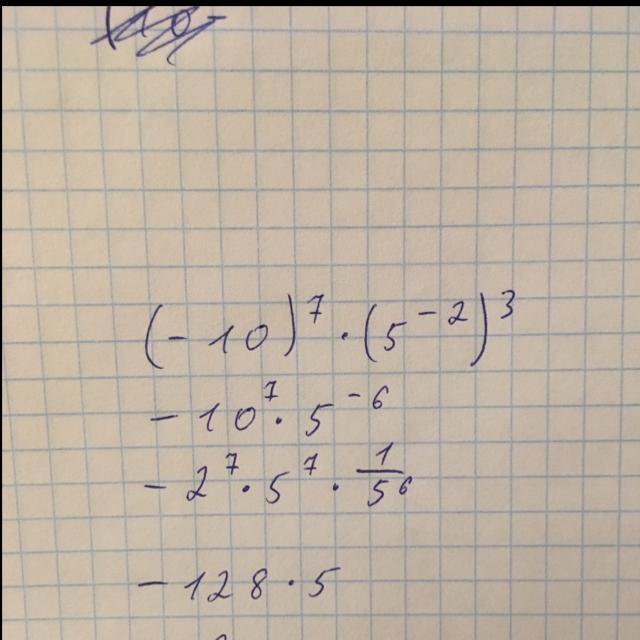 (-10)⁷ · (5⁻²)³
-10⁷ · 5⁻⁶
-2⁷ · 5⁷ · 1/5⁶
-128 · 5